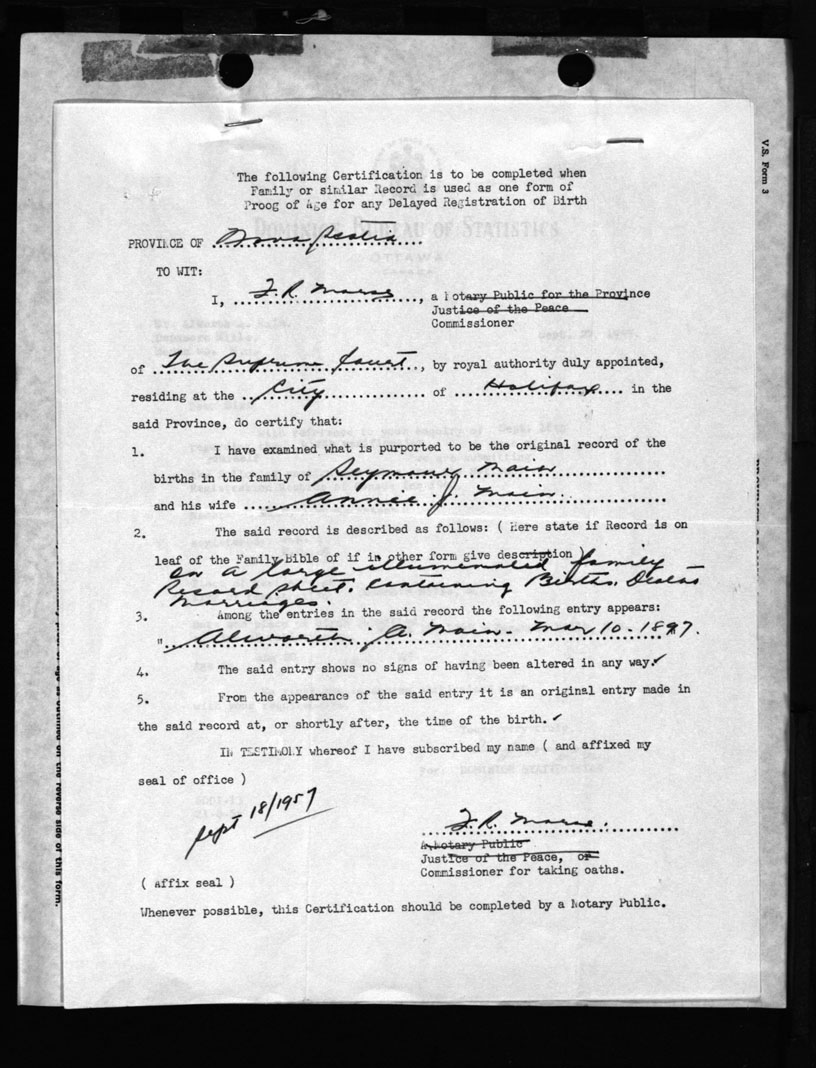 V.S. Form 3
The following Certification is to be completed when
Family or similar Record is used as one form of
Proog of Age for any Delayed Registration of Birth
DOMINION BUREAU OF STATISTICS
OTTAWA
CANADA
PROVINCE OF Nova Scotia
TO WIT:
I, F. R. Morse, a Notary Public for the Province
Justice of the Peace
Commissioner
of The Supreme Court, by royal authority duly appointed,
residing at the City of Halifax in the
said Province, do certify that:
1. I have examined what is purported to be the original record of the
births in the family of Seymour Main
and his wife Annie J. Main.
2. The said record is described as follows: ( Here state if Record is on
leaf of the Family Bible of if in other form give description )
On a large illuminated family
Record sheet. Containing Births, Deaths
Marriages.
3. Among the entries in the said record the following entry appears:
" Alworth A. Main - Mar 10 - 1897.
4. The said entry shows no signs of having been altered in any way. ✓
5. From the appearance of the said entry it is an original entry made in
the said record at, or shortly after, the time of the birth. ✓
IN TESTIMONY whereof I have subscribed my name ( and affixed my
seal of office )
Sept 18/1957
F. R. Morse.
A Notary Public
Justice of the Peace, or
Commissioner for taking oaths.
( Affix seal )
Whenever possible, this Certification should be completed by a Notary Public.